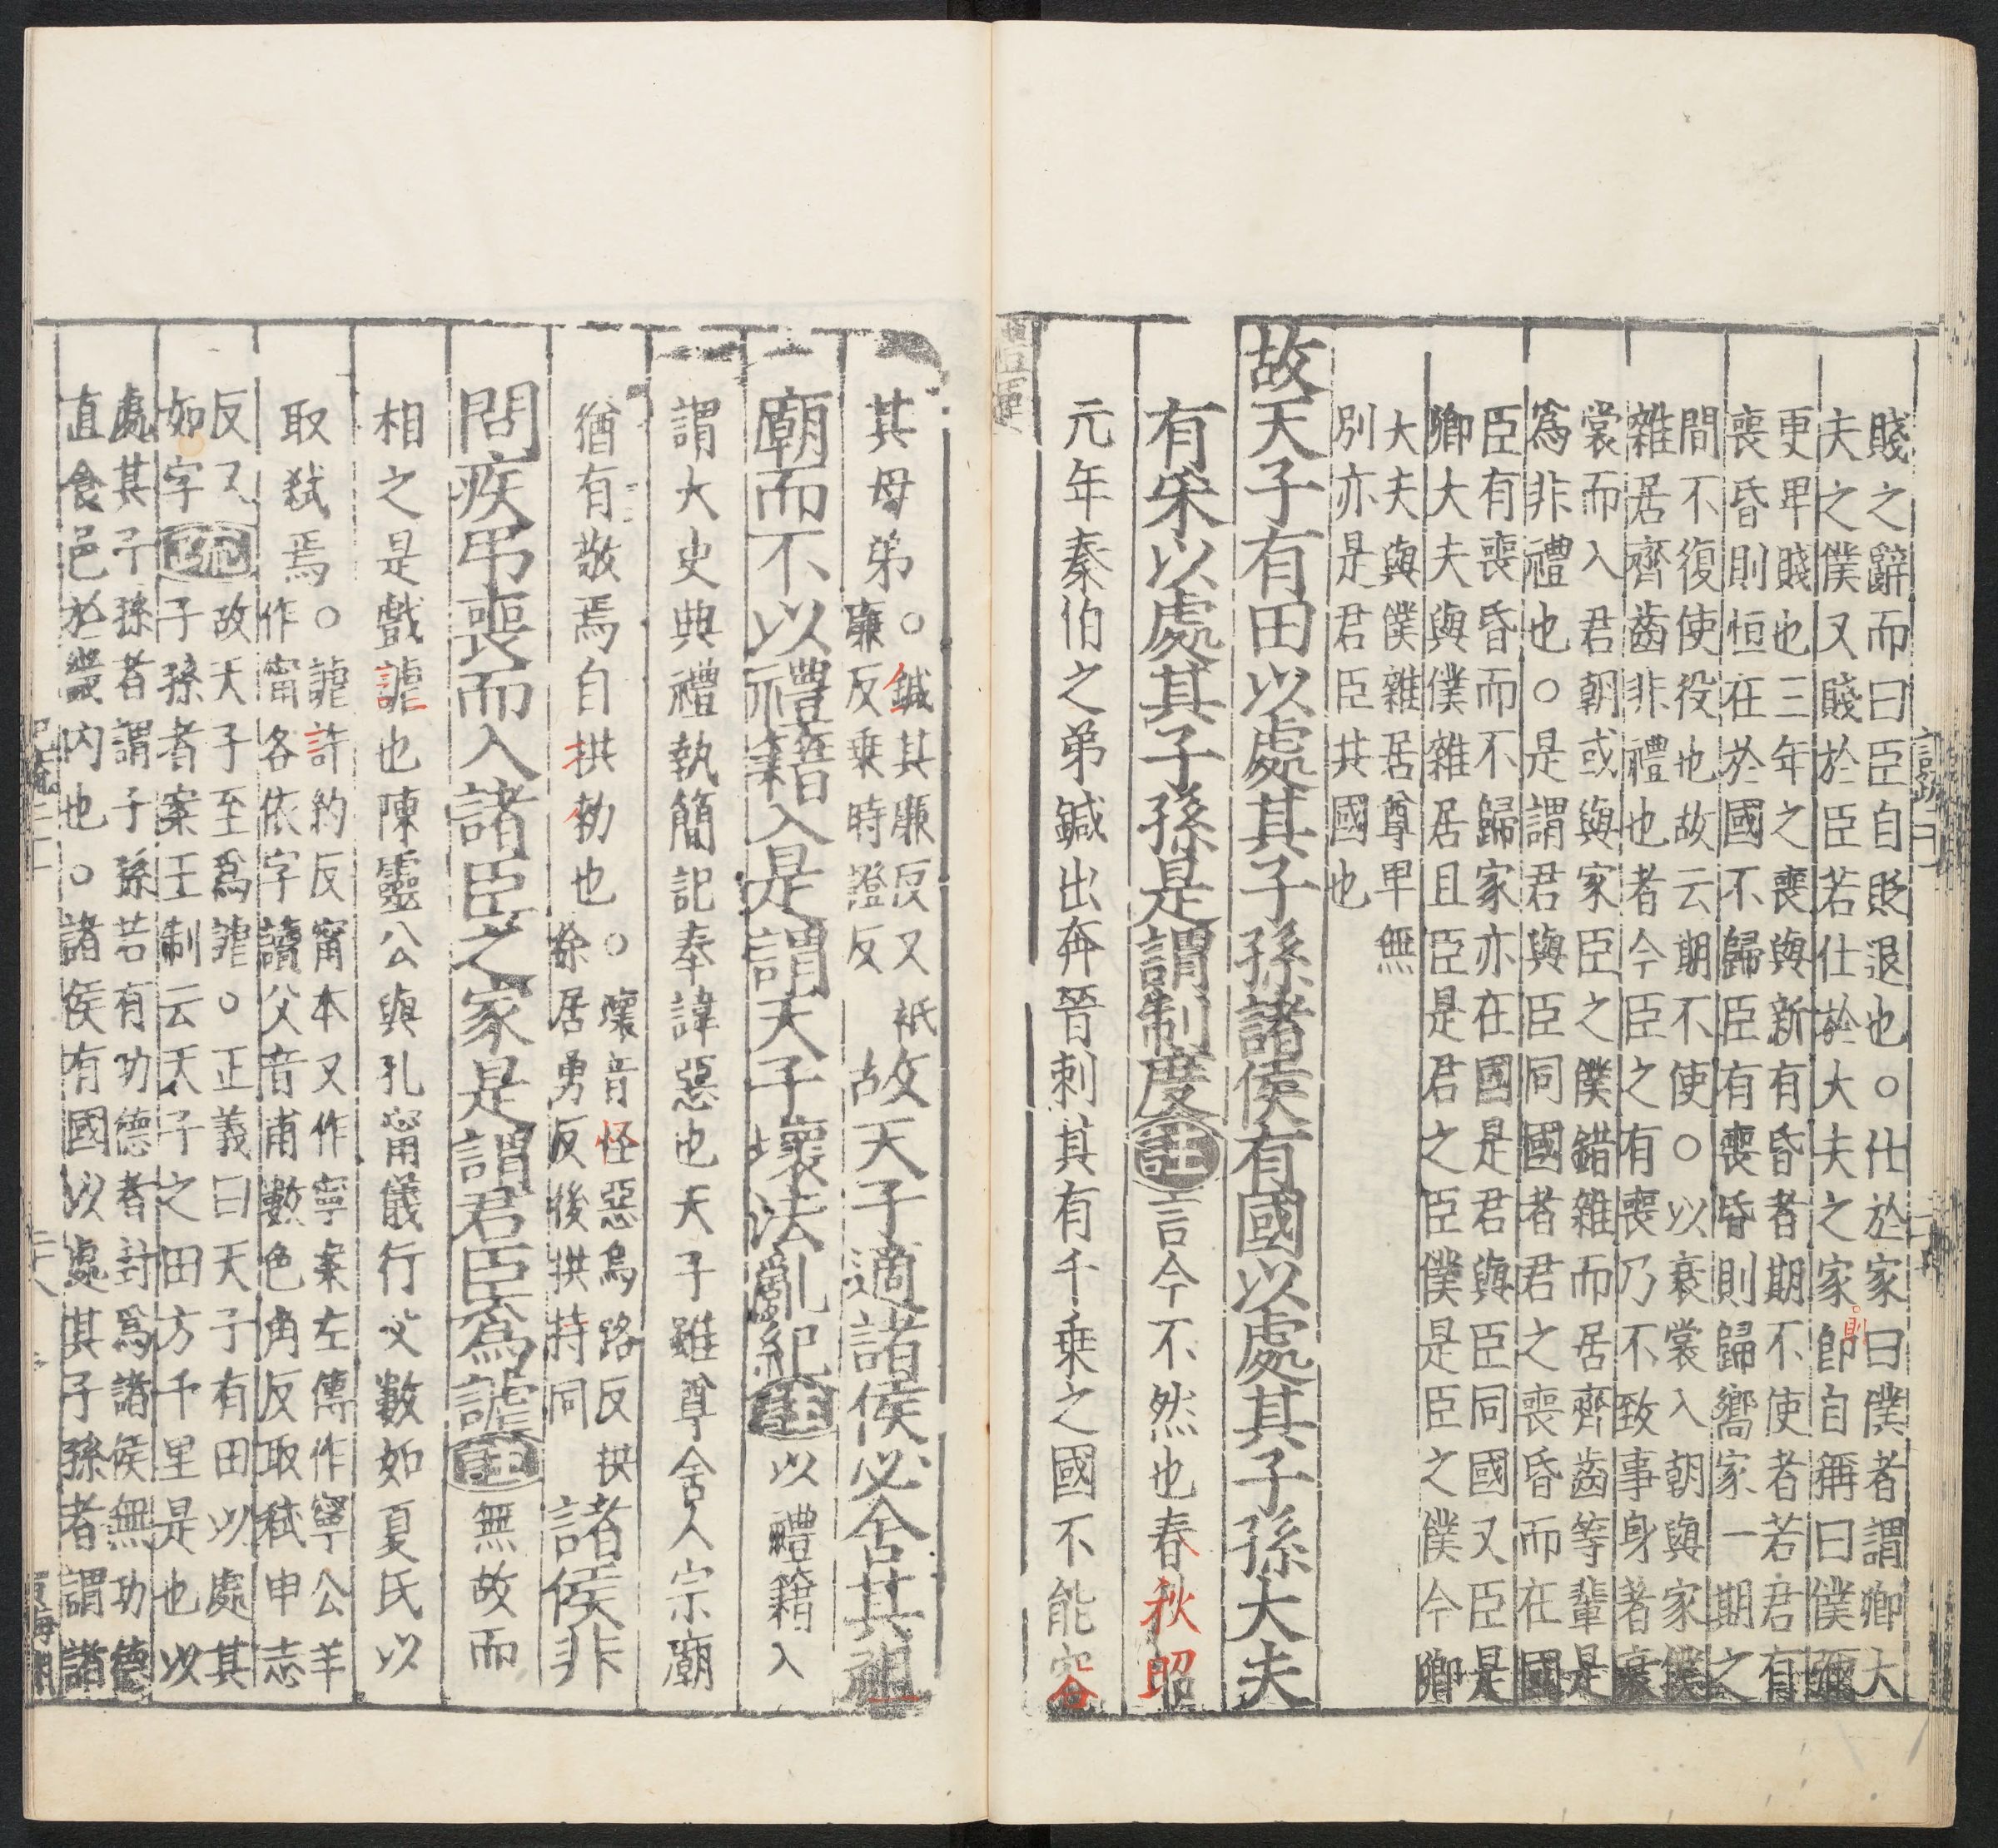 賤之辭而曰臣自貶退也○仕於家曰僕者謂卿大
夫之僕又賤於臣若仕於大夫之家即自稱曰僕彌
則
更卑賤也三年之喪與新有昏者期不使者若君有
喪昏則恒在於國不歸臣有喪昏則歸嚮家一期之
間不復使役也故云期不使○以衰裳入朝與家僕
雜居齊齒非禮也者今臣之有喪乃不致事身著衰
裳而入君朝或與家臣之僕錯雜而居齊齒等輩是
為非禮也○是謂君與臣同國者君之喪昏而在國
臣有喪昏而不歸家亦在國是君與臣同國又臣是
卿大夫與僕雜居且臣是君之臣僕是臣之僕今卿
大夫與僕雜居尊卑無
別亦是君臣共國也
故天子有田以處其子孫諸侯有國以處其子孫大夫
有采以處其子孫是謂制度注言今不然也春秋昭
元年秦伯之弟鍼出奔晉刺其有千乗之國不能容
禮運
其母弟○鍼其廉反又祇
廉反乗時證反
故天子適諸侯必舍其祖
廟而不以禮籍入是謂天子壞法亂紀注以禮籍入
謂大史典禮執簡記奉諱惡也天子雖尊舍人宗廟
猶有敬焉自拱勑也○壞音怪惡烏路反拱
徐居勇反後拱持同
諸侯非
問疾弔喪而入諸臣之家是謂君臣為謔注無故而
相之是戲謔也陳靈公與孔甯儀行父數如夏氏以
取弑焉○謔許約反甯本又作寧案左傳作寧公羊
作甯各依字讀父音甫數色角反取弑申志
反又故天子至為謔○正義曰天子有田以處其
如字疏子孫者案王制云天子之田方千里是也以
處其子孫者謂子孫若有功德者封為諸侯無功德
直食邑於畿内也○諸侯有國以處其子孫者謂諸